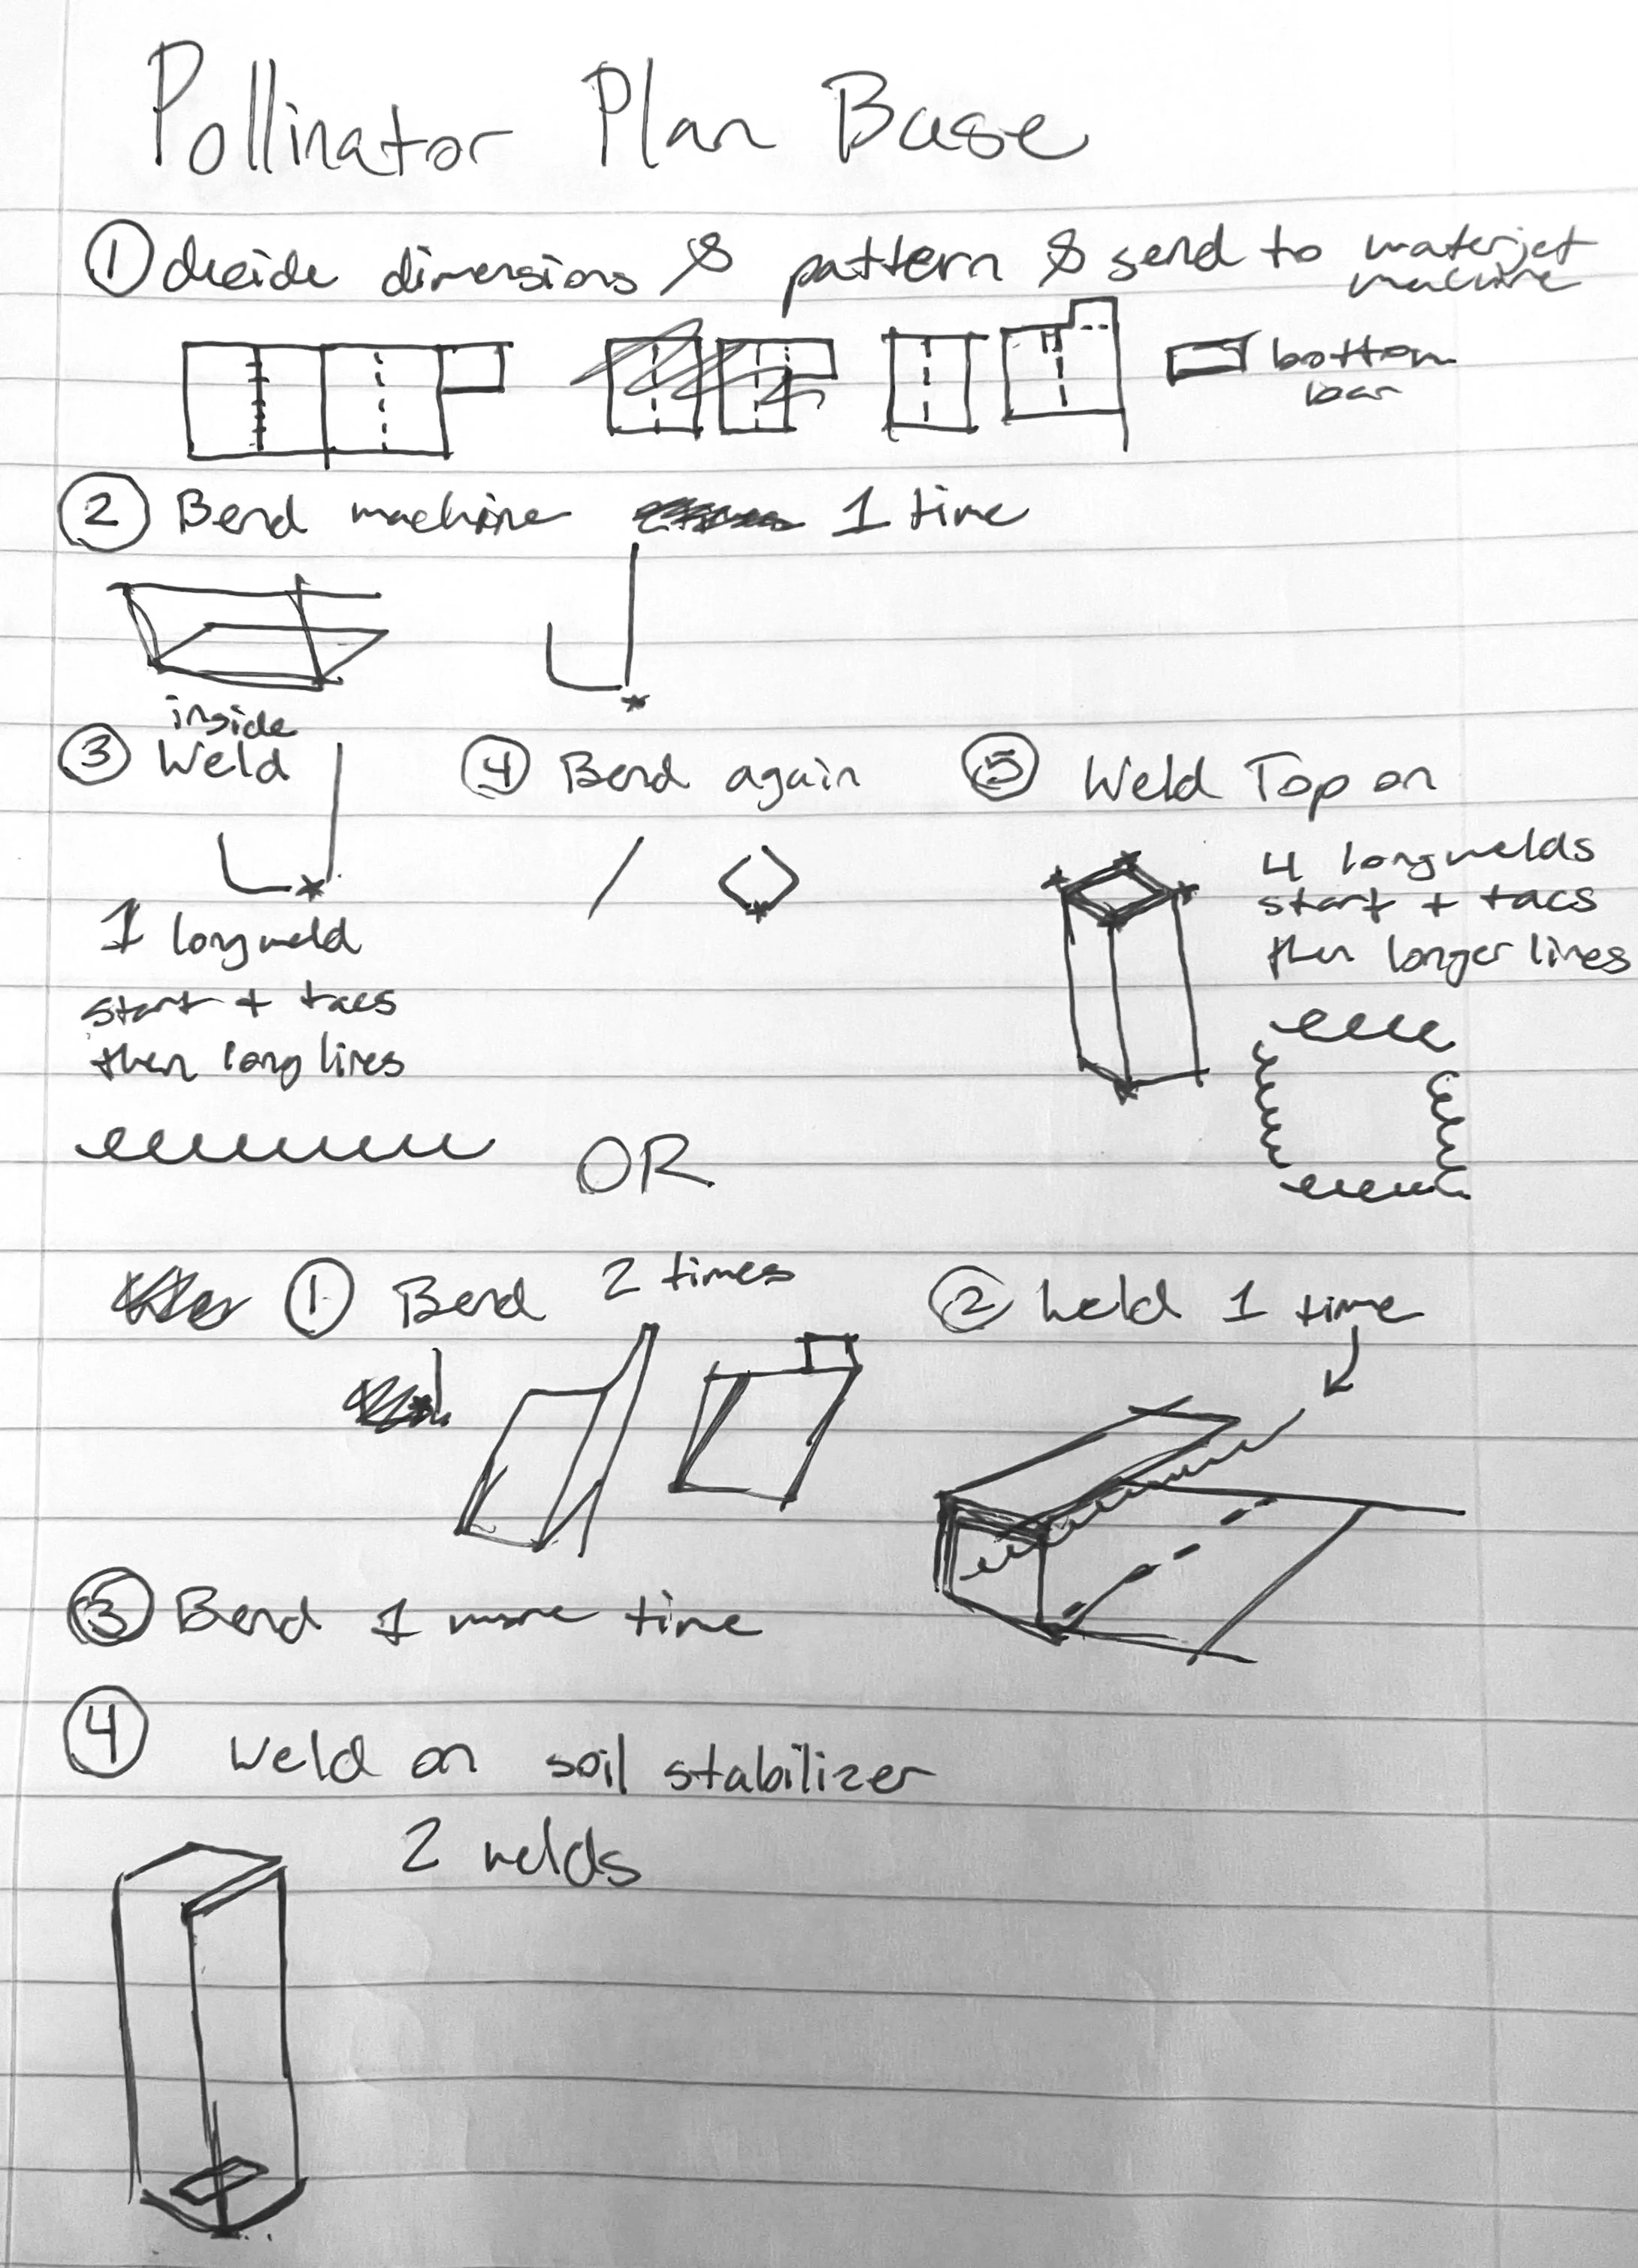 Pollinator Plan Base
① decide dimensions & pattern & send to waterjet
machine
bottom
bar
② Bend machine 1 time
inside
③ Weld
④ Bend again
⑤ Weld Top on
4 long welds
start + tacs
then longer lines
1 long weld
start + tacs
then long lines
OR
① Bend 2 times
② Weld 1 time
③ Bend 1 more time
④ Weld on soil stabilizer
2 welds